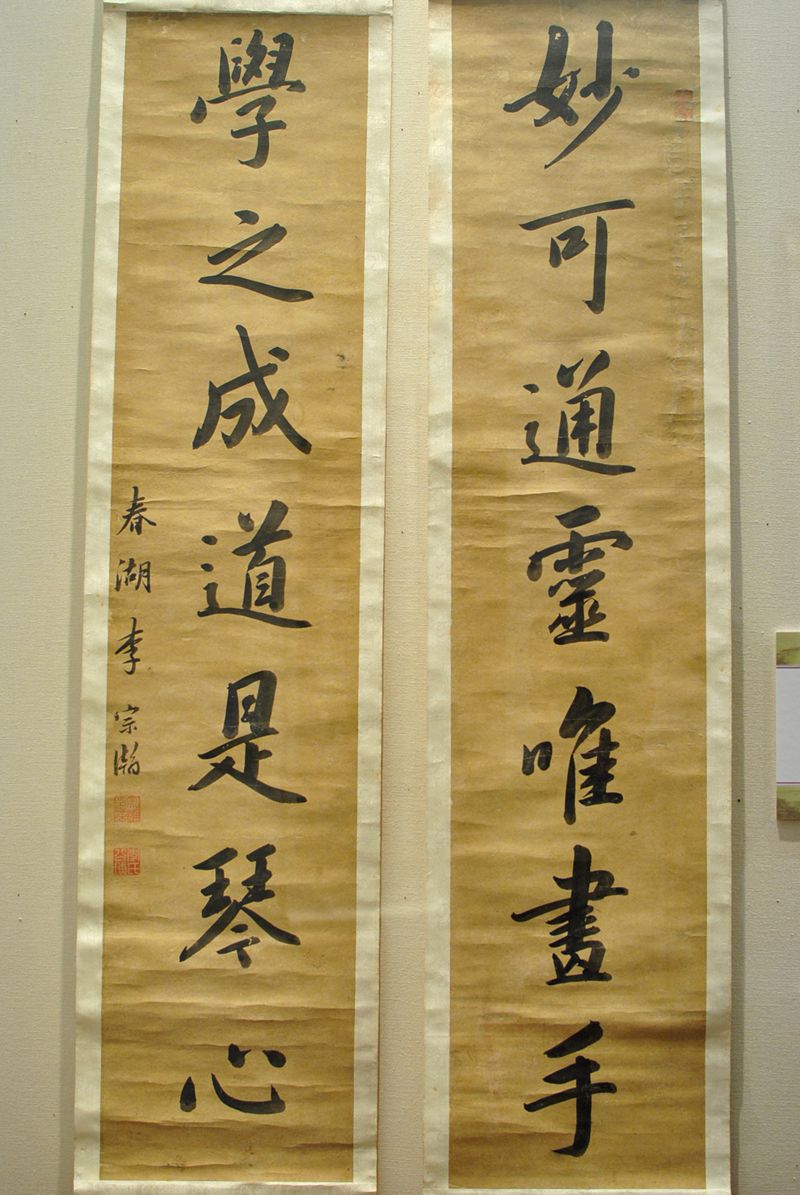 妙可通靈唯畫手
學之成道是琴心
春湖李宗瀚